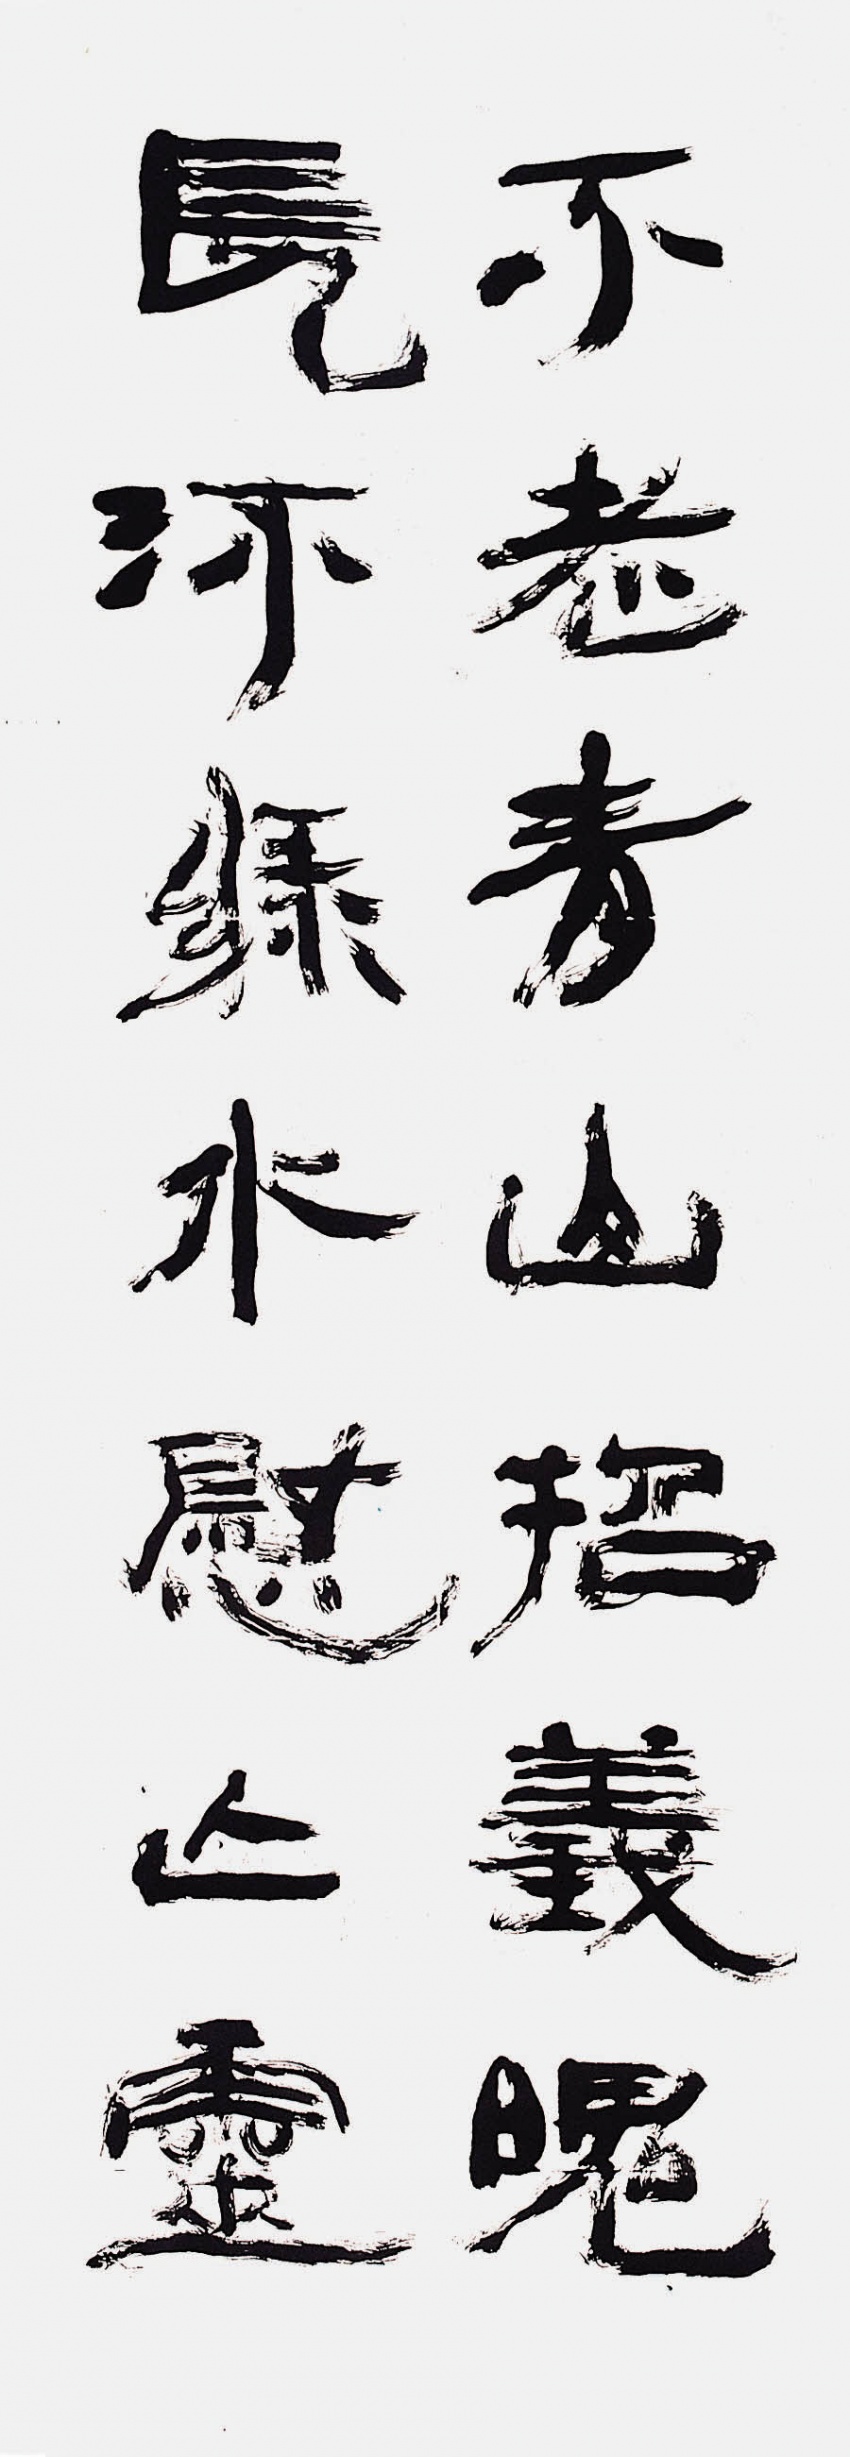 不老青山招義魄
長流綠水慰亡靈